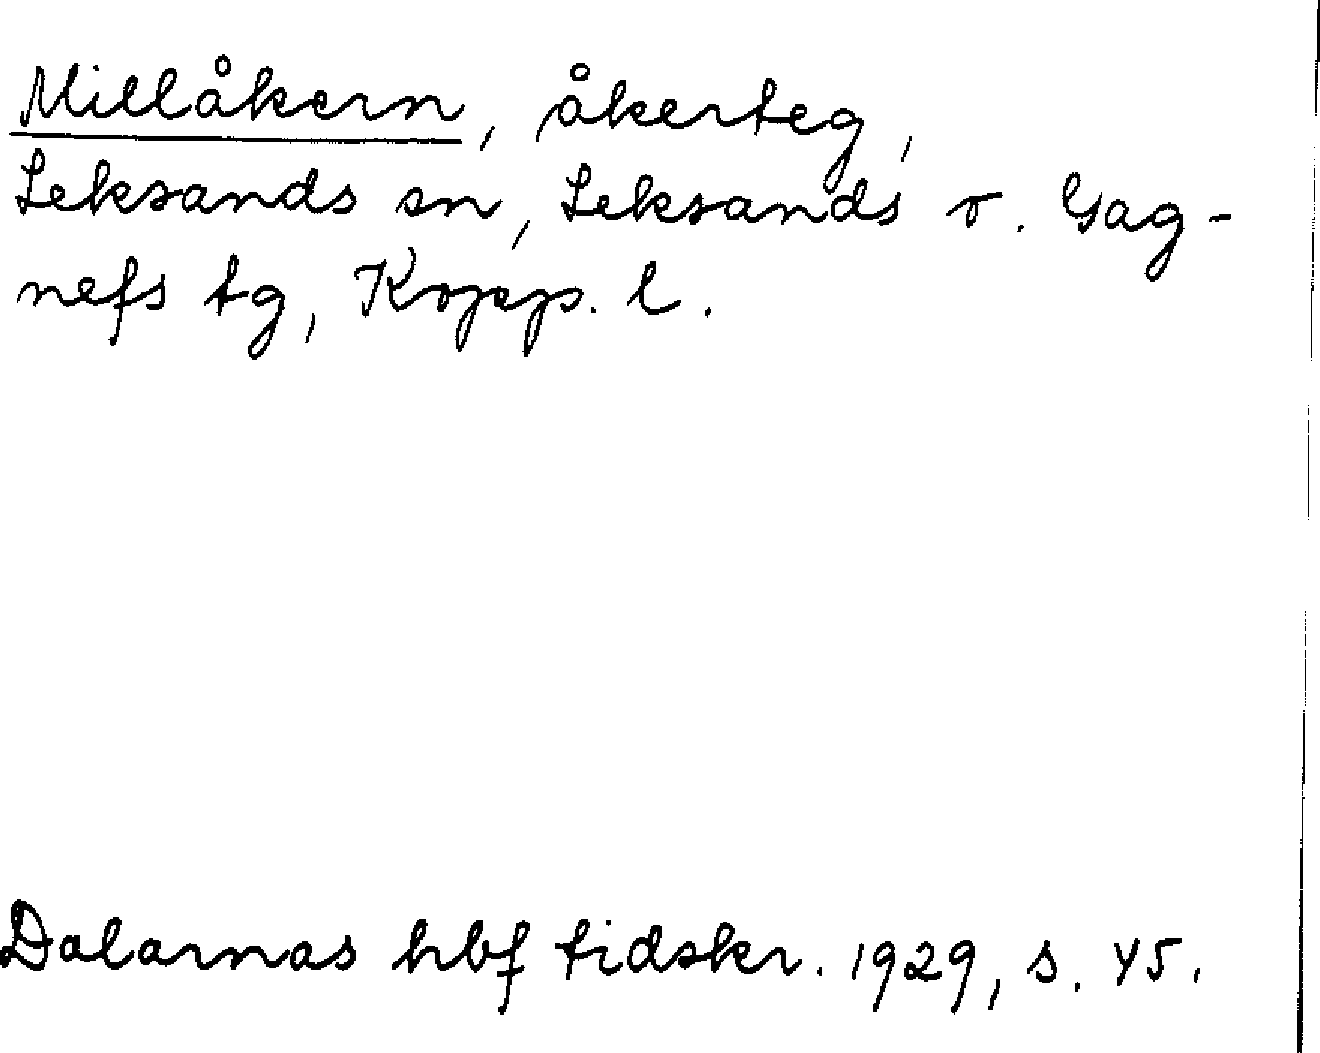 Millåkern, åkerteg,
Leksands sn, Leksands o. Gag-
nefs tg, Kopp. l.
Dalarnas hbf tidskr. 1929, s. 45.